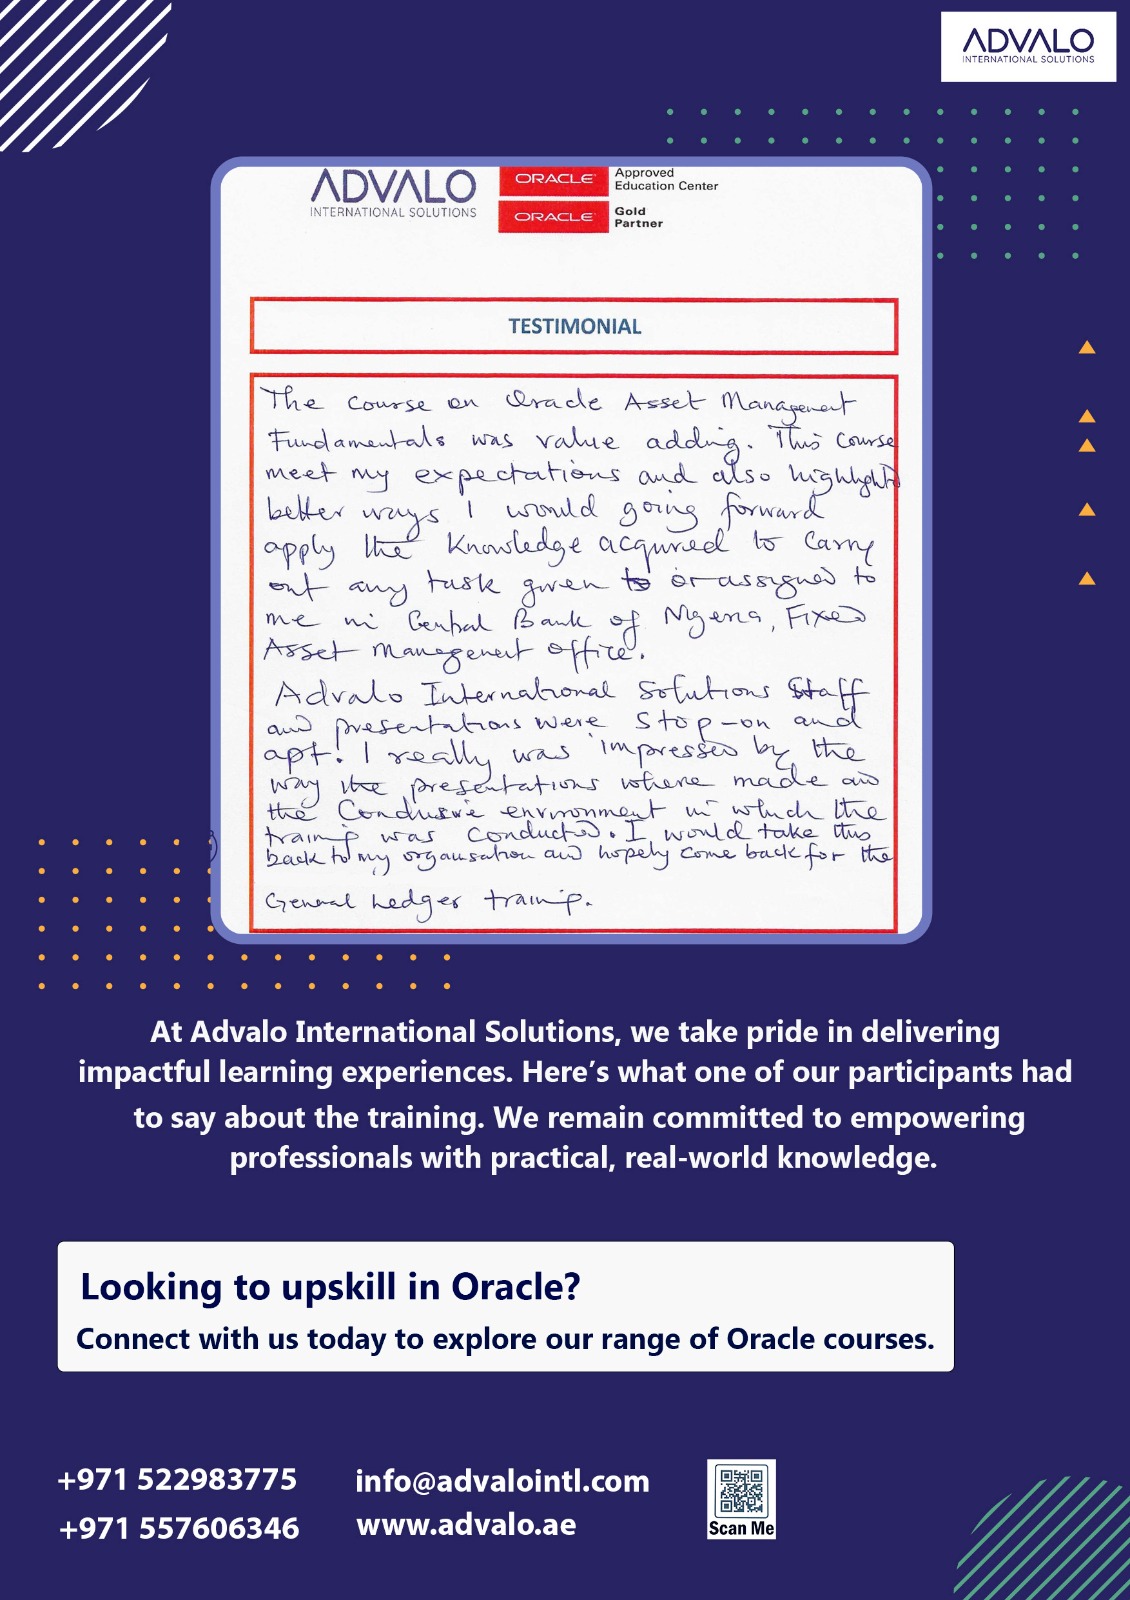 ADVALO
INTERNATIONAL SOLUTIONS
ADVALO
INTERNATIONAL SOLUTIONS
ORACLE Approved
Education Center
ORACLE Gold
Partner
TESTIMONIAL
The course on Oracle Asset Management
Fundamentals was value adding. This course
meet my expectations and also highlighted
better ways I would going forward
apply the knowledge acquired to carry
out any task given to or assigned to
me in Central Bank of Nigeria, Fixed
Asset Management office.
Advalo International Solutions Staff
and presentations were stop-on and
apt! I really was impressed by the
way the presentations where made and
the Conducive environment in which the
training was conducted. I would take this
back to my organisation and hopely come back for the
General Ledger training.
At Advalo International Solutions, we take pride in delivering
impactful learning experiences. Here’s what one of our participants had
to say about the training. We remain committed to empowering
professionals with practical, real-world knowledge.
Looking to upskill in Oracle?
Connect with us today to explore our range of Oracle courses.
+971 522983775
+971 557606346
info@advalointl.com
www.advalo.ae
Scan Me